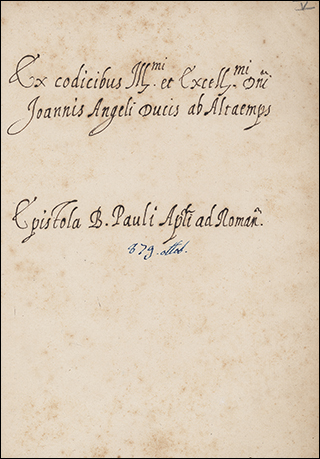 V
Ex codicibus Ill.mi et Excell.mi Dñi
Joannis Angeli Ducis ab Altaemps
Epistola B. Pauli Apľi ad Romañ.
879. ottob.